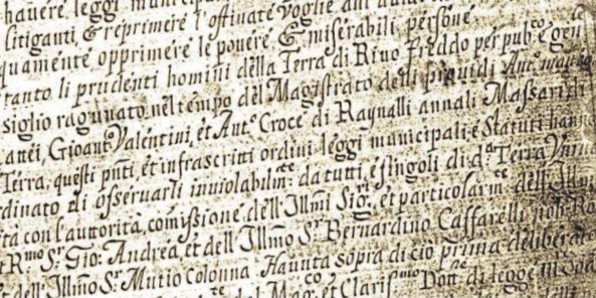 havere leggi
litiganti, & reprimere l'ostinate voglie
quamente opprimere le povere & miserabili persone
tanto li prudenti homini della Terra di Rivo Freddo per pub.co e gen.le
siglio ragunato nel tempo del Magistrato delli providi
Gioant Valentini, et Ant.o Croce di Raynalli annali Massari di
Terra, questi pnti, et infrascritti ordini leggi municipali e Statuti hanno
dinato di osservarli inviolabilm.te da tutti, e singoli di d.a Terra
tà con l'autorità, comissione dell'Illmi Sig.ri et particolarm.te dell'Illmo
et R.mo S.r Gio: Andrea, et dell'Illmo S.r Bernardino Caffarelli nob: Ro
e dell'Illmo S.r Mutio Colonna. Haunta sopra di ciò prima deliberat
del Mag.co et Claris.mo Dott. di legge